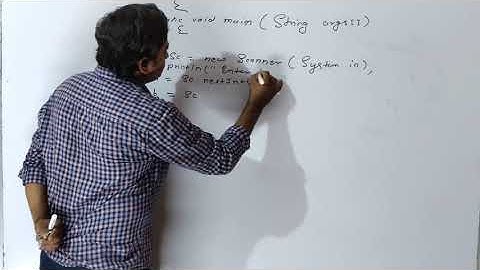 {
void main ( String args[])
{
Sc = new Scanner ( System in),
println(" Enter
= Sc nextInt
b = Sc